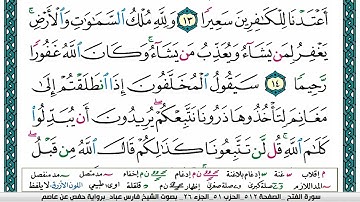 أَعْتَدْنَا لِلْكَافِرِينَ سَعِيرًا ١٣ وَلِلَّهِ مُلْكُ السَّمَاوَاتِ وَالْأَرْضِ
يَغْفِرُ لِمَن يَشَاءُ وَيُعَذِّبُ مَن يَشَاءُ وَكَانَ اللَّهُ غَفُورًا
رَّحِيمًا ١٤ سَيَقُولُ الْمُخَلَّفُونَ إِذَا انطَلَقْتُمْ إِلَى
مَغَانِمَ لِتَأْخُذُوهَا ذَرُونَا نَتَّبِعْكُمْ يُرِيدُونَ أَن يُبَدِّلُوا
كَلَامَ اللَّهِ قُل لَّن تَتَّبِعُونَا كَذَٰلِكُمْ قَالَ اللَّهُ مِن قَبْلُ
سورة الفتح الصفحة ٥١٢ الحزب ٥١ الجزء ٢٦ بصوت الشيخ فارس عباد برواية حفص عن عاصم